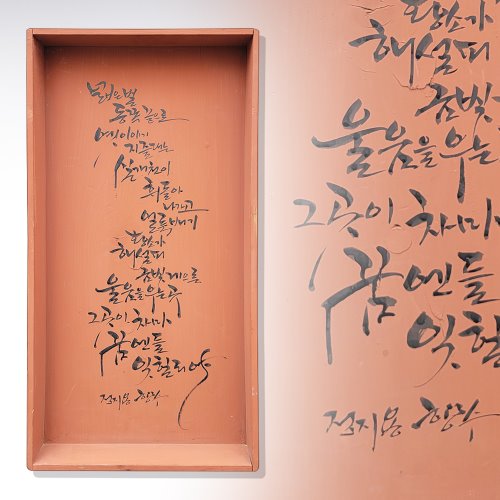 넓은벌
동쪽 끝으로
옛이야기
지줄대는
실개천이
휘돌아
나가고
얼룩배기
황소가
해설피
금빛게으른
울음을 우는 곳
그곳이 차마
꿈엔들
잊힐리야
정지용 향수
황소가
해설피
금빛
울음을 우는
그곳이 차마
꿈엔들
잊힐
정지용 향수